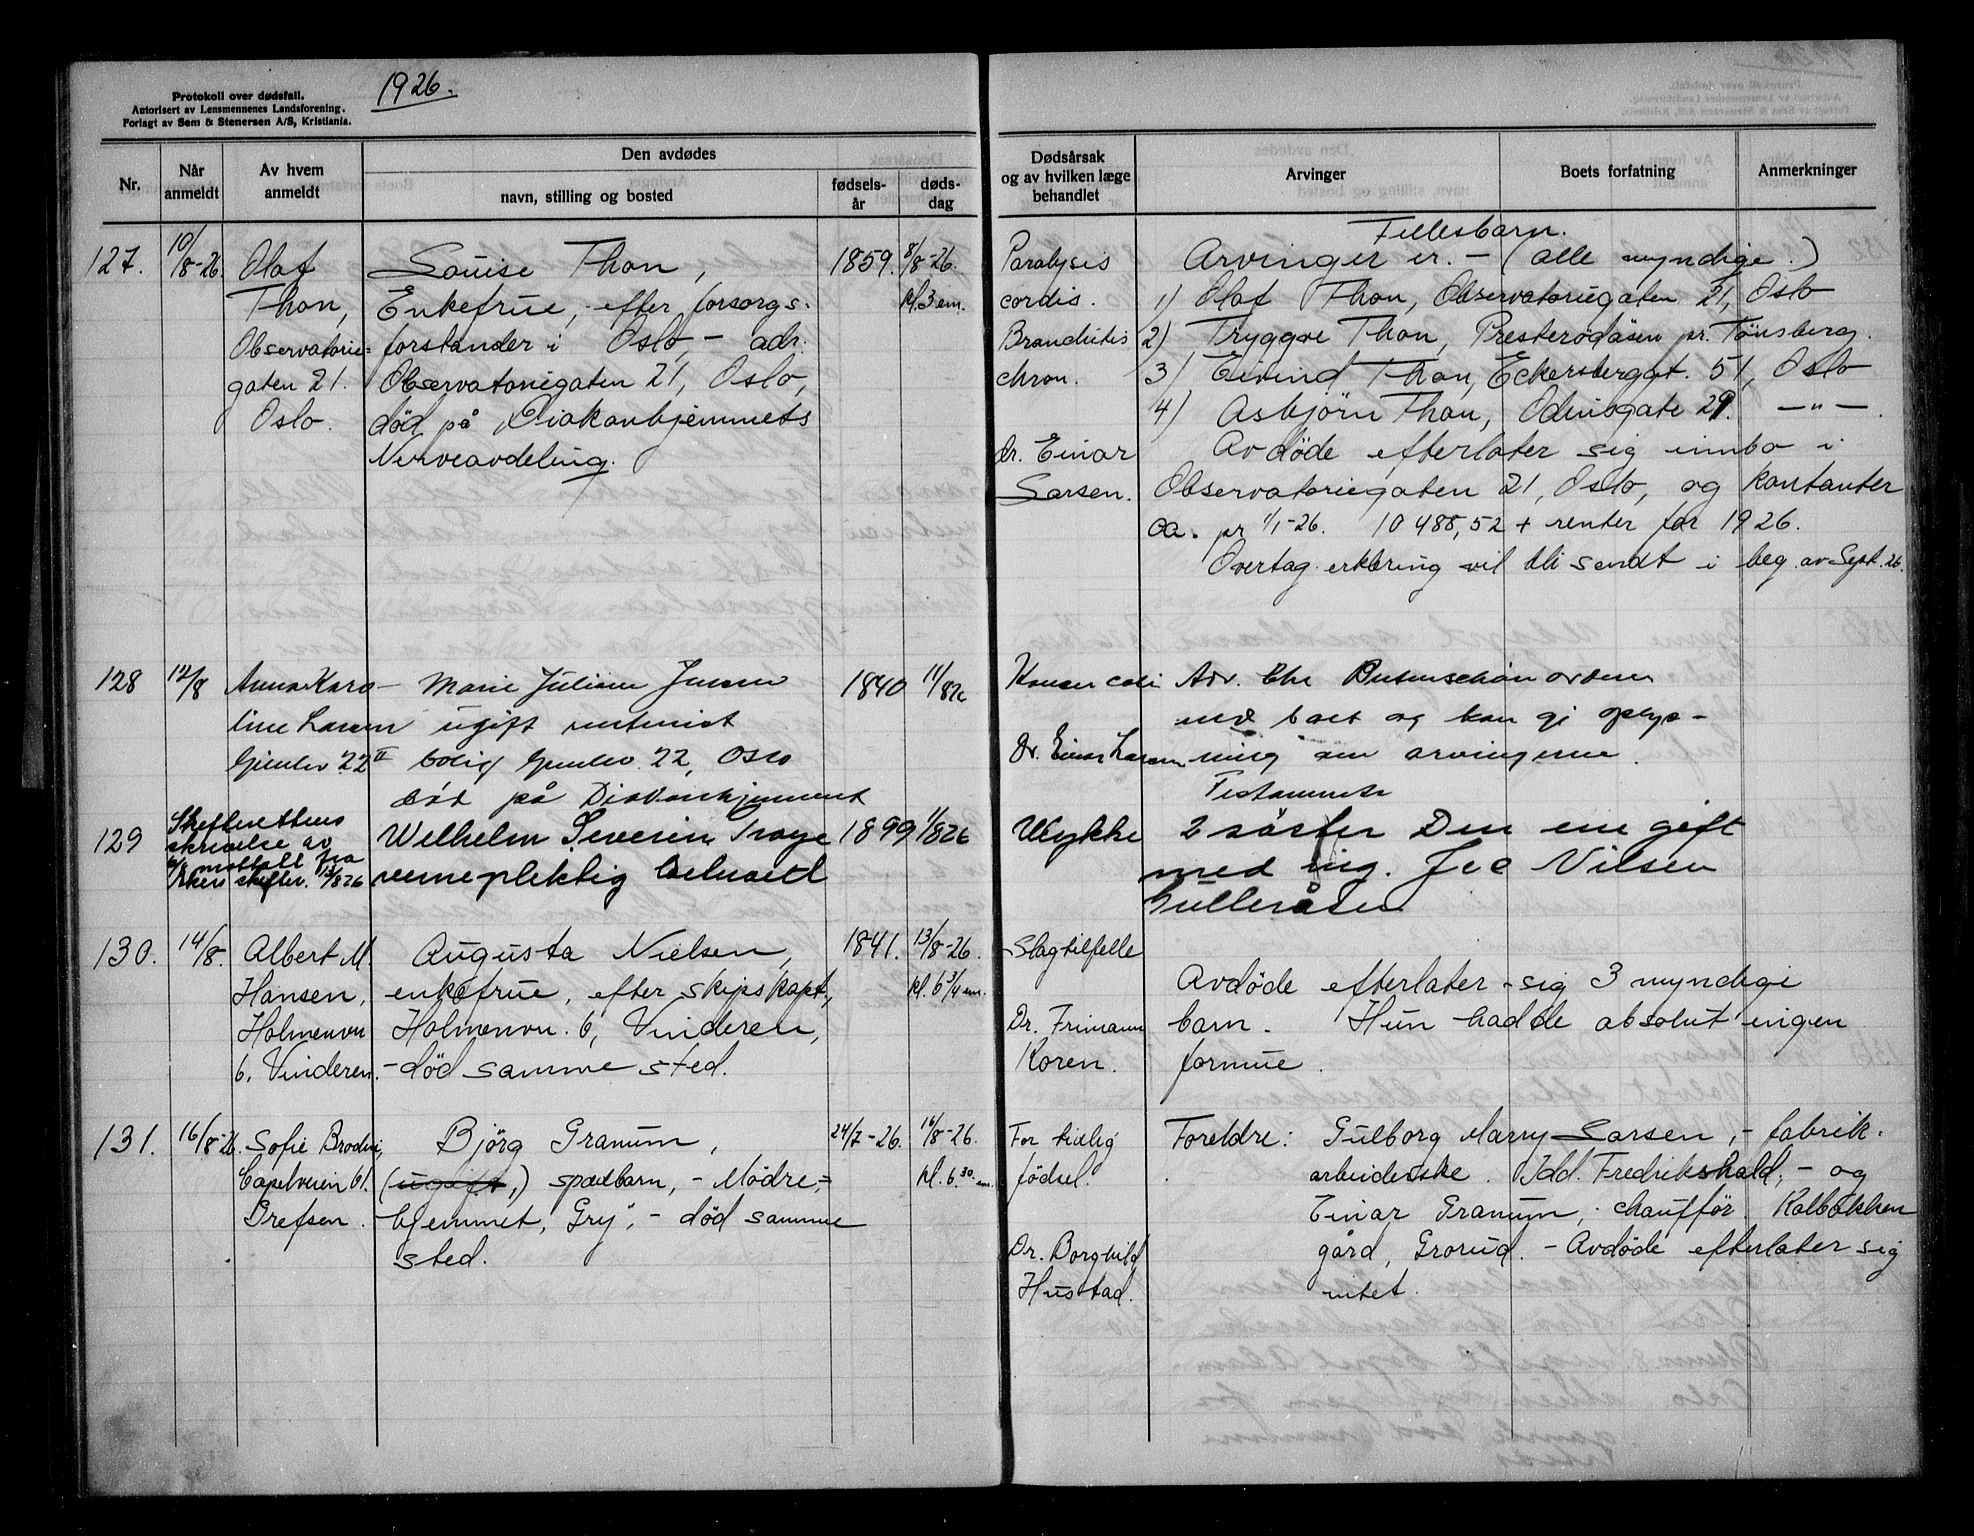 Protokoll over dødsfall.
Autorisert av Lensmennenes Landsforening.
Forlagt av Sem & Stenersen A/S, Kristiania.
1926.
Nr.
Når anmeldt
Av hvem anmeldt
Den avdødes
navn, stilling og bosted
fødselsår
dødsdag
Dødsårsak og av hvilken læge behandlet
Arvinger
Boets forfatning
Anmerkninger
127.
10/8-26.
Olaf
Thon,
Observatorie-
gaten 21.
Oslo.
Louise Thon,
Enkefrue, efter forsorgs-
forstander i Oslo, - adr.
Observatoriegaten 21, Oslo,
død på Diakonhjemmets
Nerveavdeling.
1859.
8/8-26.
kl. 3 em.
Paralysis
cordis.
Bronchitis
chron.
dr. Einar
Larsen.
Fellesbarn.
Arvinger er. - (alle myndige.)
1) Olaf Thon, Observatoriegaten 21, Oslo
2) Tryggve Thon, Presterødåsen pr. Tönsberg.
3) Eivind Thon, Eckersberggt. 51, Oslo
4) Asbjörn Thon, Odinsgate 29. -"-.
Avdöde efterlater sig innbo i
Observatoriegaten 21, Oslo, og kontanter
ca. pr 1/1-26. 10488,52 + renter for 1926.
Overtag. erklæring vil bli sendt i beg. av Sept. 26.
128
12/8
Anna Karo-
line Larsen
22 II
Marie Juliane Jensen
ugift rentenist
bolig 22, Oslo
död på Diakonhjemmet
1840
11/8 26
Kancer coli
Dr. Einar Larsen
Adv. Chr ordner
med boet og kan gi oplys-
ning om arvingerne.
Testamente
129
Skifterettens
skrivelse av
mottatt fra
Akers skifter. 13/8 26
Wilhelm Severin
vernepliktig
1899
1/8 26
Ulykke
2 söster Den ene gift
med ing. Nilsen
Gulleråsen
130.
14/8.
Albert M.
Hansen,
Holmenvn
6, Vinderen.
Augusta Nielsen,
enkefrue, efter skipskapt.,
Holmenvn. 6, Vinderen,
- död samme sted.
1841.
13/8-26.
kl. 6 3/4 em.
Slagtilfelle
Dr. Frimann
Koren.
Avdöde efterlater sig 3 myndige
barn. Hun hadde absolut ingen
formue.
131.
16/8-26.
Sofie Brodin,
Capelveien 61.
Grefsen.
Björg Granum,
(ugift,) spædbarn, - Mödre-
hjemmet, "Gry", - död samme
sted.
24/7-26.
16/8-26.
kl. 6.30 em.
For tidlig
födsel.
Dr. Borghild
Hustad.
Foreldre: Gulborg Marry Larsen, - fabrik-
arbeiderske. Idd. Fredrikshald, - og
Einar Granum, chaufför. Kalbakken
gård, Grorud. - Avdöde efterlater sig
intet.